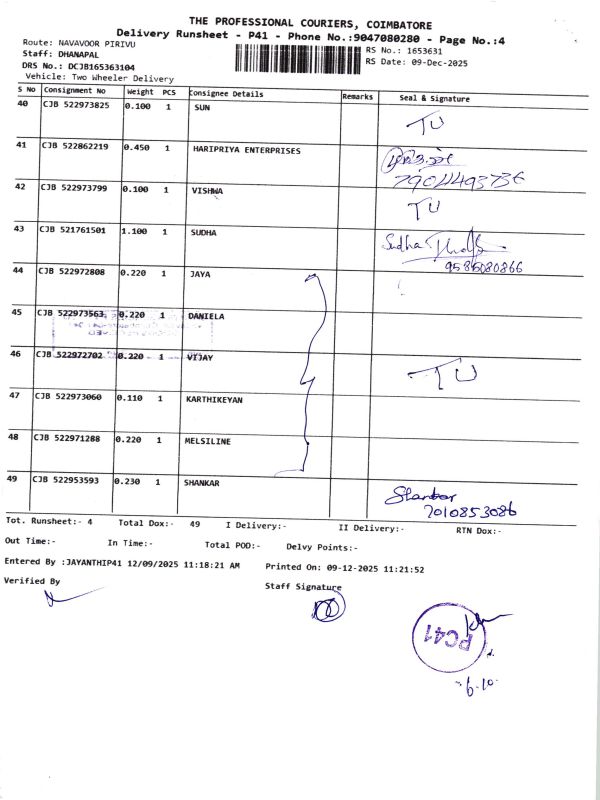 THE PROFESSIONAL COURIERS, COIMBATORE
Delivery Runsheet - P41 - Phone No.:9047080280 - Page No.:4
Route: NAVAVOOR PIRIVU
RS No.: 1653631
Staff: DHANAPAL
RS Date: 09-Dec-2025
DRS No.: DCJB165363104
Vehicle: Two Wheeler Delivery
S No Consignment No Weight PCS Consignee Details Remarks Seal & Signature
40 CJB 522973825 0.100 1 SUN TU
41 CJB 522862219 0.450 1 HARIPRIYA ENTERPRISES
42 CJB 522973799 0.100 1 VISHWA TU
43 CJB 521761501 1.100 1 SUDHA Sudha
9585080866
44 CJB 522972808 0.220 1 JAYA
45 CJB 522973563 0.220 1 DANIELA
46 CJB 522972702 0.220 1 VIJAY TU
47 CJB 522973060 0.110 1 KARTHIKEYAN
48 CJB 522971288 0.220 1 MELSILINE
49 CJB 522953593 0.230 1 SHANKAR Shankar
7010853086
Tot. Runsheet:- 4 Total Dox:- 49 I Delivery:- II Delivery:- RTN Dox:-
Out Time:- In Time:- Total POD:- Delvy Points:-
Entered By :JAYANTHIP41 12/09/2025 11:18:21 AM Printed On: 09-12-2025 11:21:52
Verified By
Staff Signature
PC41
6.10